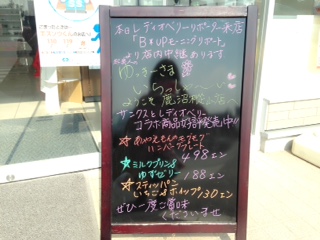 本日レディオベリーリポーター来店
「B☆UPモーニングリポート」
より店内中継あります
ゆっきーさま
いらっしゃ〜い
ようこそ鹿沼
サンクスとレディオベリー
コラボ商品好評発売中!!!
ハンバーグプレート
498エン
☆ミルクプリン&
ゆずゼリー 188エン
☆スティックパン
いちご&ホイップ 130エン
ぜひ一度ご賞味
くださいませ